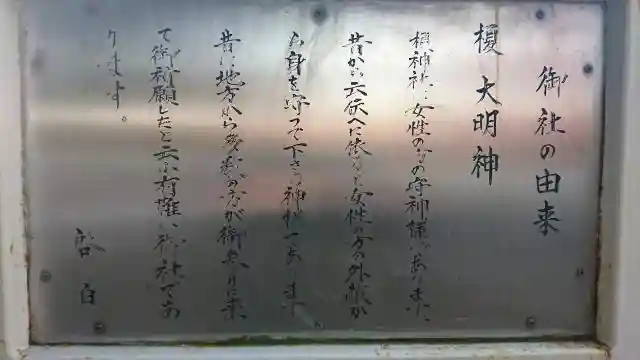 御社の由来
榎大明神
榎神社は女性の方の守神様であります、
昔から云伝へに依ると女性の方の外敵か
ら身を守つて下さる神様であります
昔は地方から多数の方が御参りに来
て御祈願したと云ふ有難い御社であ
ります。
啓白